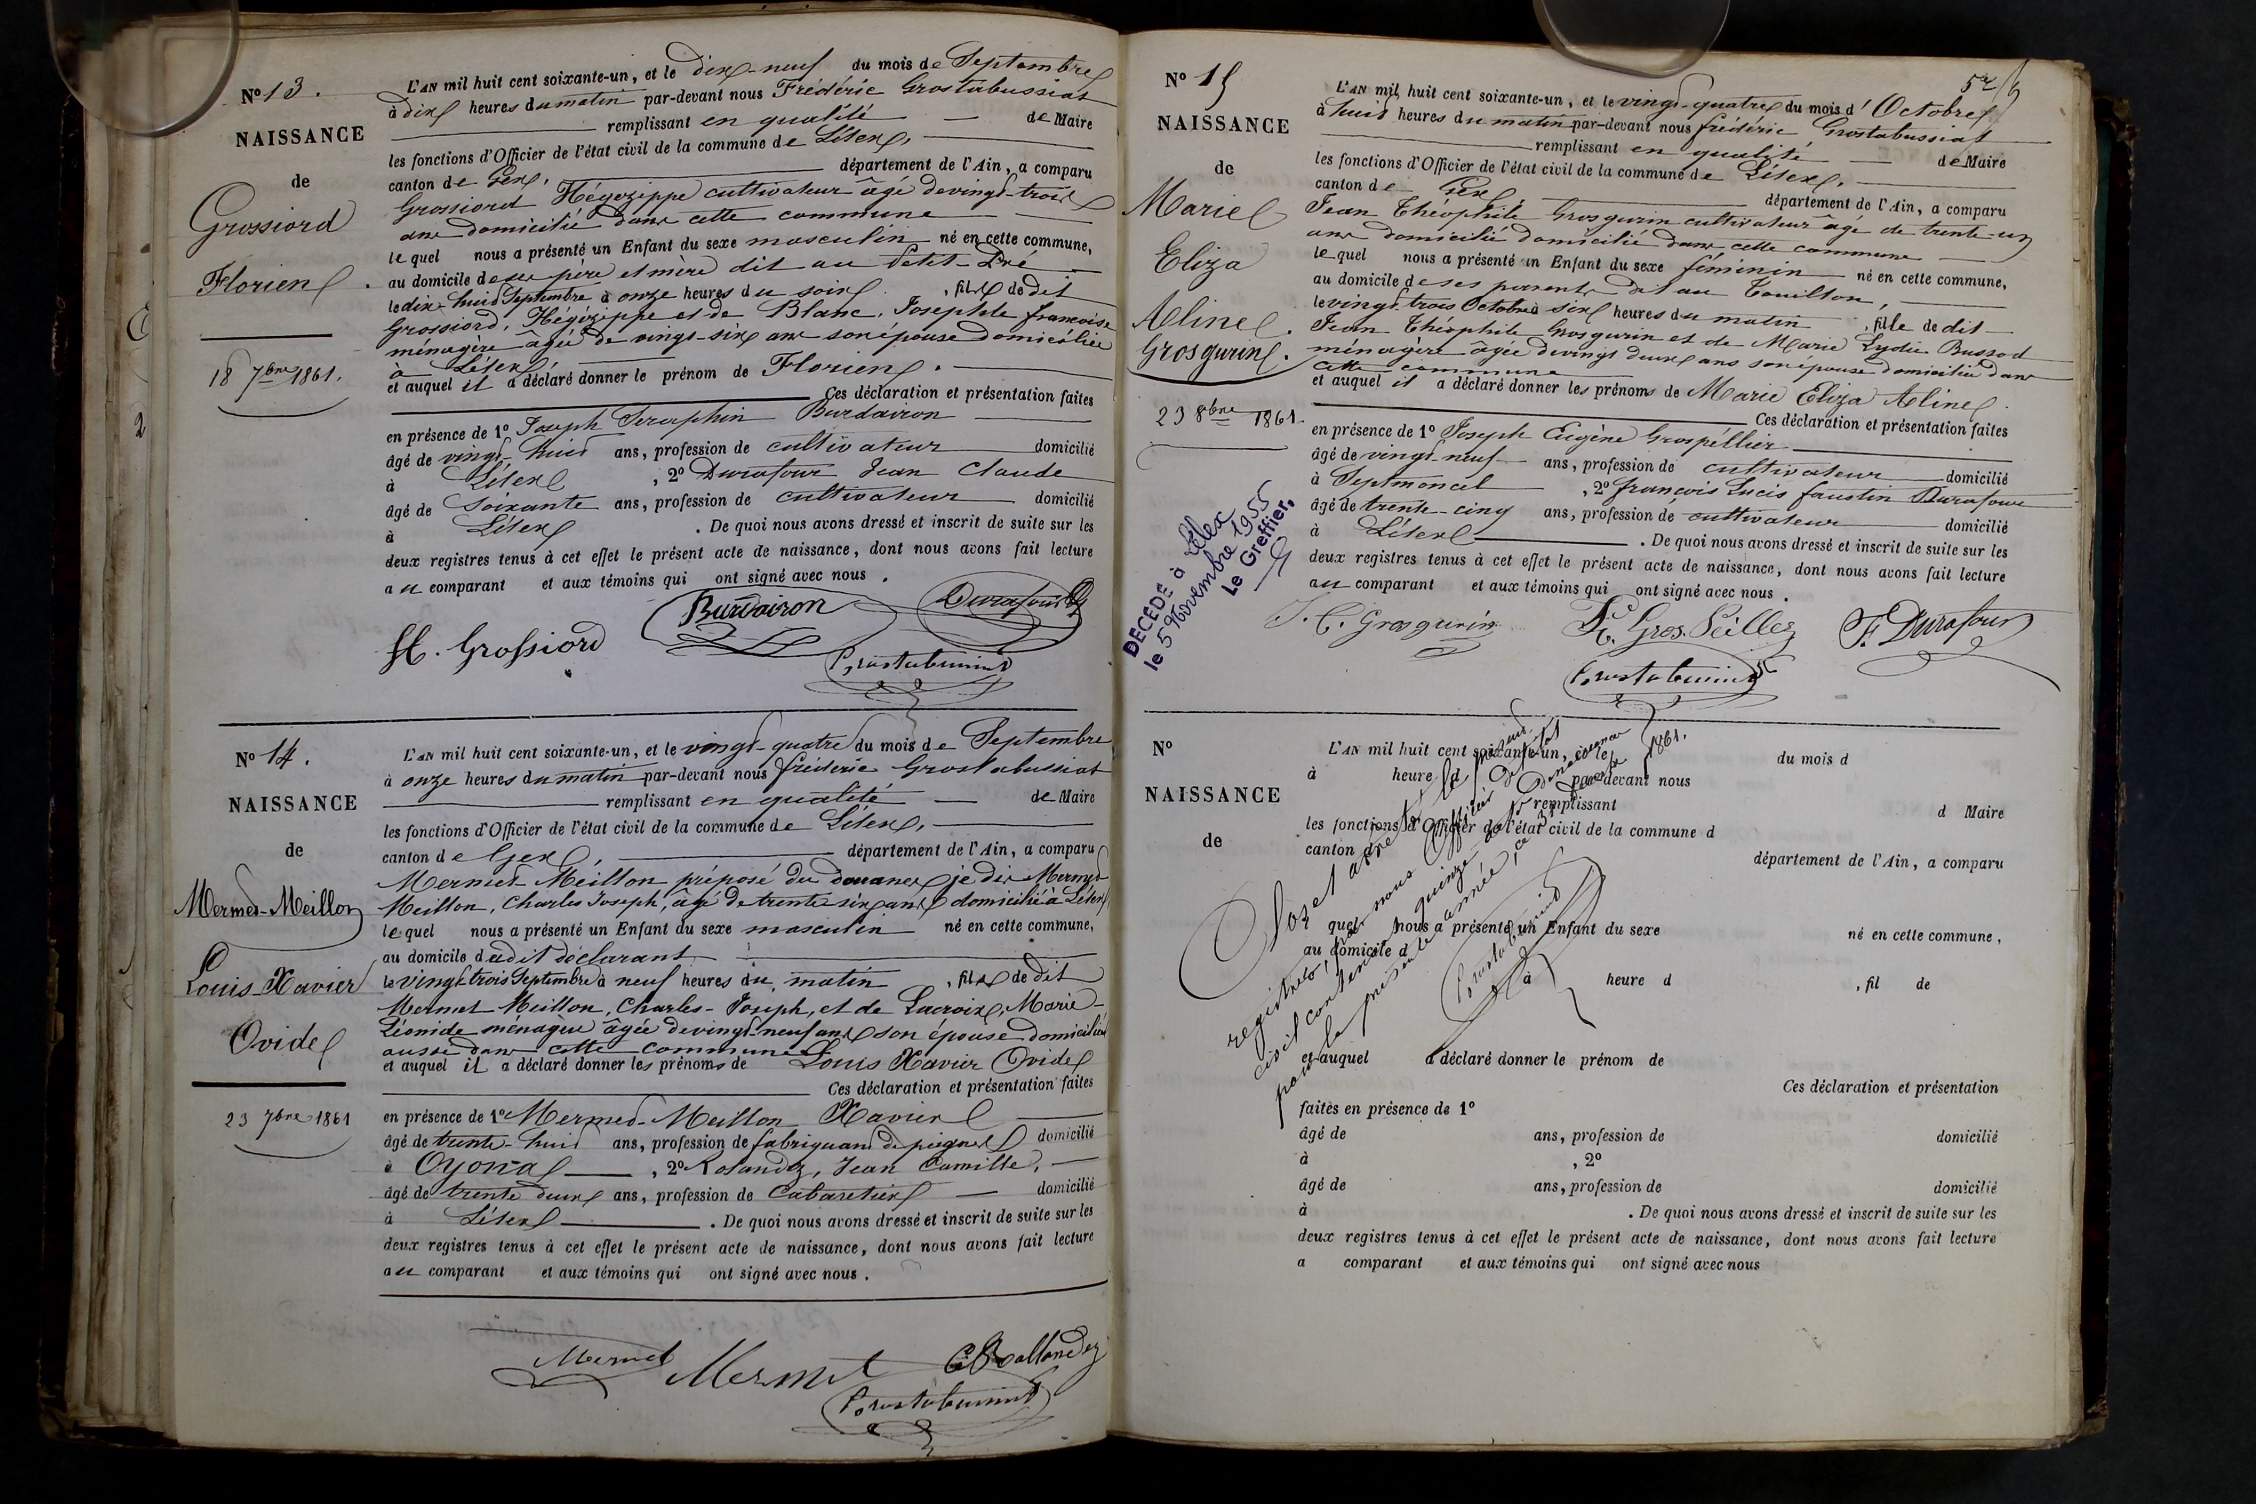 N° 13.
NAISSANCE
de
Grossiord
Florien
18 7bre 1861.
L'AN mil huit cent soixante-un, et le dix-neuf du mois de Septembre
à dix heures du matin par-devant nous Frédéric Grostabussiat
remplissant en qualité de Maire
les fonctions d'Officier de l'état civil de la commune de Lélex,
canton de Gex, département de l'Ain, a comparu
Grossiord Hégézippe cultivateur âgé de vingt-trois
ans domicilié dans cette commune
lequel nous a présenté un Enfant du sexe masculin né en cette commune,
au domicile de ses père et mère dit au Petit-Pré
le dix-huit Septembre à onze heures du soir, fils de dit
Grossiord, Hégézippe et de Blanc, Josephte françoise
ménagère âgée de vingt-six ans son épouse domiciliée
à Lélex
et auquel il a déclaré donner le prénom de Florien.
Ces déclaration et présentation faites
en présence de 1° Joseph Séraphin Burdairon
âgé de vingt-huit ans, profession de cultivateur domicilié
à Lélex, 2° Durafour Jean Claude
âgé de soixante ans, profession de cultivateur domicilié
à Lélex. De quoi nous avons dressé et inscrit de suite sur les
deux registres tenus à cet effet le présent acte de naissance, dont nous avons fait lecture
au comparant et aux témoins qui ont signé avec nous.
Burdairon
Durafour
H. Grossiord
Grostabussiat
N° 14.
NAISSANCE
de
Mermet-Meillon
Louis Xavier
Ovide
23 7bre 1861
L'AN mil huit cent soixante-un, et le vingt-quatre du mois de Septembre
à onze heures du matin par-devant nous frédéric Grostabussiat
remplissant en qualité de Maire
les fonctions d'Officier de l'état civil de la commune de Lélex,
canton de Gex département de l'Ain, a comparu
Mermet Meillon préposé du douanes je dis Mermet
Meillon, Charles Joseph, âgé de trente six ans domicilié à Lélex
lequel nous a présenté un Enfant du sexe masculin né en cette commune,
au domicile dudit déclarant
le vingt trois Septembre à neuf heures du matin, fils de dit
Mermet Meillon, Charles-Joseph, et de Lacroix, Marie-
Léonide ménagère âgée de vingt-neuf ans son épouse domiciliée
aussi dans cette commune
et auquel il a déclaré donner les prénoms de Louis Xavier Ovide
Ces déclaration et présentation faites
en présence de 1° Mermet-Meillon Xavier
âgé de trente-huit ans, profession de fabriquant de peignes domicilié
à Oyonax, 2° Rolandez, Jean Camille,
âgé de trente deux ans, profession de Cabaretier domicilié
à Lélex. De quoi nous avons dressé et inscrit de suite sur les
deux registres tenus à cet effet le présent acte de naissance, dont nous avons fait lecture
au comparant et aux témoins qui ont signé avec nous.
Mermet
Mermet
Grostabussiat
N° 15
NAISSANCE
de
Marie
Eliza
Aline
Grosgurin.
23 8bre 1861.
DÉCÉDÉ à Lélex
le 5 Novembre 1955
Le Greffier,
L'AN mil huit cent soixante-un, et le vingt-quatre du mois d'Octobre
à huit heures du matin par-devant nous frédéric Grostabussiat
remplissant en qualité de Maire
les fonctions d'Officier de l'état civil de la commune de Lélex,
canton de Gex, département de l'Ain, a comparu
Jean Théophile Grosgurin cultivateur âgé de trente-un
ans domicilié domicilié dans cette commune
lequel nous a présenté un Enfant du sexe féminin né en cette commune,
au domicile de ses parents dit au Touillon,
le vingt trois Octobre à six heures du matin, fille de dit
Jean Théophile Grosgurin et de Marie Lydie Bussod
ménagère âgée de vingt deux ans son épouse domiciliée dans
cette commune
et auquel il a déclaré donner les prénoms de Marie Eliza Aline.
Ces déclaration et présentation faites
en présence de 1° Joseph Eugène Grospéllier
âgé de vingt-neuf ans, profession de cultivateur domicilié
à Septmoncel, 2° françois Lucis faustin Durafour
âgé de trente-cinq ans, profession de cultivateur domicilié
à Lélex. De quoi nous avons dressé et inscrit de suite sur les
deux registres tenus à cet effet le présent acte de naissance, dont nous avons fait lecture
au comparant et aux témoins qui ont signé avec nous.
J. T. Grosgurin
F. Durafour
Grostabussiat
N°
NAISSANCE
de
L'AN mil huit cent soixante-un, et le du mois d
à heure d par-devant nous
remplissant d Maire
les fonctions d'Officier de l'état civil de la commune d
canton d département de l'Ain, a comparu
quel nous a présenté un Enfant du sexe né en cette commune,
au domicile d
à heure d, fil de
et auquel a déclaré donner le prénom de
Ces déclaration et présentation
faites en présence de 1°
âgé de ans, profession de domicilié
à, 2°
âgé de ans, profession de domicilié
à. De quoi nous avons dressé et inscrit de suite sur les
deux registres tenus à cet effet le présent acte de naissance, dont nous avons fait lecture
a comparant et aux témoins qui ont signé avec nous
Clos et arrêté le présent
registre, par nous Officier de l'état
civil contenant quinze actes de naissance
pour la présente année, ce 31 Décembre 1861.
Grostabussiat